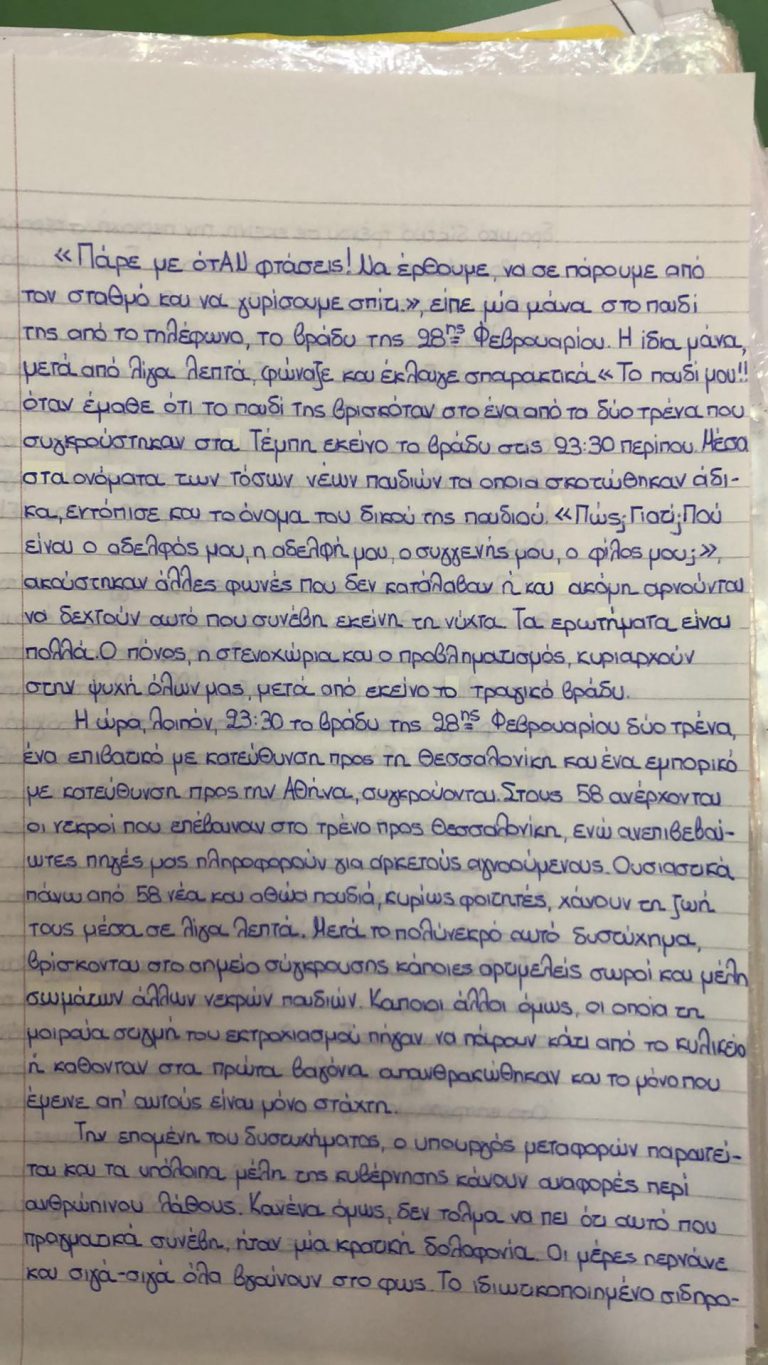 «Πάρε με όταΝ φτάσεις! Να έρθουμε, να σε πάρουμε από
τον σταθμό και να γυρίσουμε σπίτι.», είπε μία μάνα στο παιδί
της από το τηλέφωνο, το βράδυ της 28ης Φεβρουαρίου. Η ίδια μάνα,
μετά από λίγα λεπτά, φώναξε και έκλαιγε σπαρακτικά «Το παιδί μου!!
όταν έμαθε ότι το παιδί της βρισκόταν στο ένα από τα δύο τρένα που
συγκρούστηκαν στα Τέμπη εκείνο το βράδυ στις 23:30 περίπου. Μέσα
στα ονόματα των τόσων νέων παιδιών τα οποία σκοτώθηκαν άδι-
κα, εντόπισε και το όνομα του δικού της παιδιού. «Πώς; Γιατί; Πού
είναι ο αδελφός μου, η αδελφή μου, ο συγγενής μου, ο φίλος μου;»,
ακούστηκαν άλλες φωνές που δεν κατάλαβαν ή και ακόμη αρνούνται
να δεχτούν αυτό που συνέβη εκείνη τη νύχτα. Τα ερωτήματα είναι
πολλά. Ο πόνος, η στενοχώρια και ο προβληματισμός, κυριαρχούν
στην ψυχή όλων μας, μετά από εκείνο το τραγικό βράδυ.
Η ώρα, λοιπόν, 23:30 το βράδυ της 28ης Φεβρουαρίου δύο τρένα,
ένα επιβατικό με κατεύθυνση προς τη Θεσσαλονίκη και ένα εμπορικό
με κατεύθυνση προς την Αθήνα, συγκρούονται. Στους 58 ανέρχονται
οι νεκροί που επέβαιναν στο τρένο προς Θεσσαλονίκη, ενώ ανεπιβεβαί-
ωτες πηγές μας πληροφορούν για αρκετούς αγνοούμενους. Ουσιαστικά
πάνω από 58 νέα και αθώα παιδιά, κυρίως φοιτητές, χάνουν τη ζωή
τους μέσα σε λίγα λεπτά. Μετά το πολύνεκρό αυτό δυστύχημα,
βρίσκονται στο σημείο σύγκρουσης κάποιες αρτιμελείς σωροί και μέλη
σωμάτων άλλων νεκρών παιδιών. Κάποιοι άλλοι όμως, οι οποία τη
μοιραία στιγμή του εκτροχιασμού πήγαν να πάρουν κάτι από το κυλικείο
ή κάθονταν στα πρώτα βαγόνια απανθρακώθηκαν και το μόνο που
έμεινε απ' αυτούς είναι μόνο στάχτη.
Την επομένη του δυστυχήματος, ο υπουργός μεταφορών παραιτεί-
ται και τα υπόλοιπα μέλη της κυβέρνησης κάνουν αναφορές περί
ανθρώπινου λάθους. Κανένα όμως, δεν τολμα να πει ότι αυτό που
πραγματικά συνέβη, ήταν μία κρατική δολοφονία. Οι μέρες περνάνε
και σιγά-σιγά όλα βγαίνουν στο φως. Το ιδιωτικοποιημένο σιδηρο-